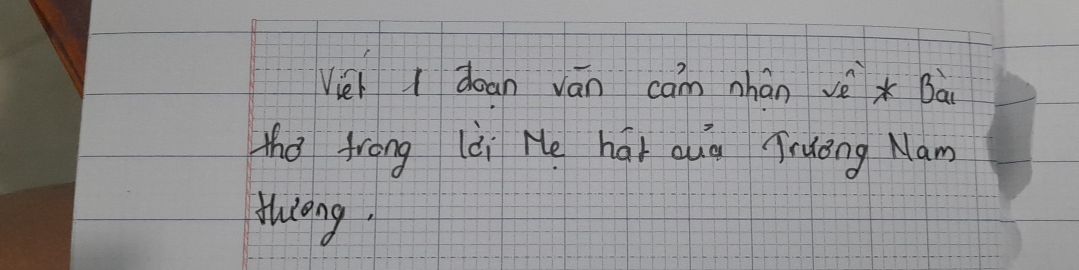 Viết 1 đoạn văn cảm nhận về * Bài
thơ trong lời Mẹ hát của Trương Nam
Hương.